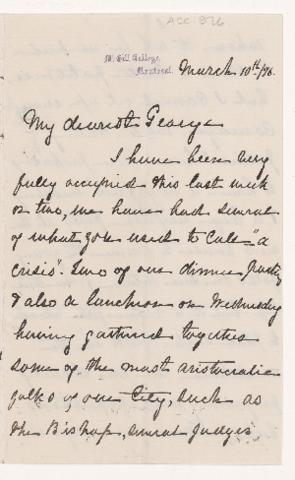 ACC 976
McGill College,
Montreal.
March 10th/96.
My dearest George
I have been very
fully occupied this last week
or two, we have had several
of what you used to call "a
crisis". Two of our dinner party
& also a luncheon on Wednesday
having gathered together
some of the most aristocratic
folks of our City, such as
the Bishop, several Judges